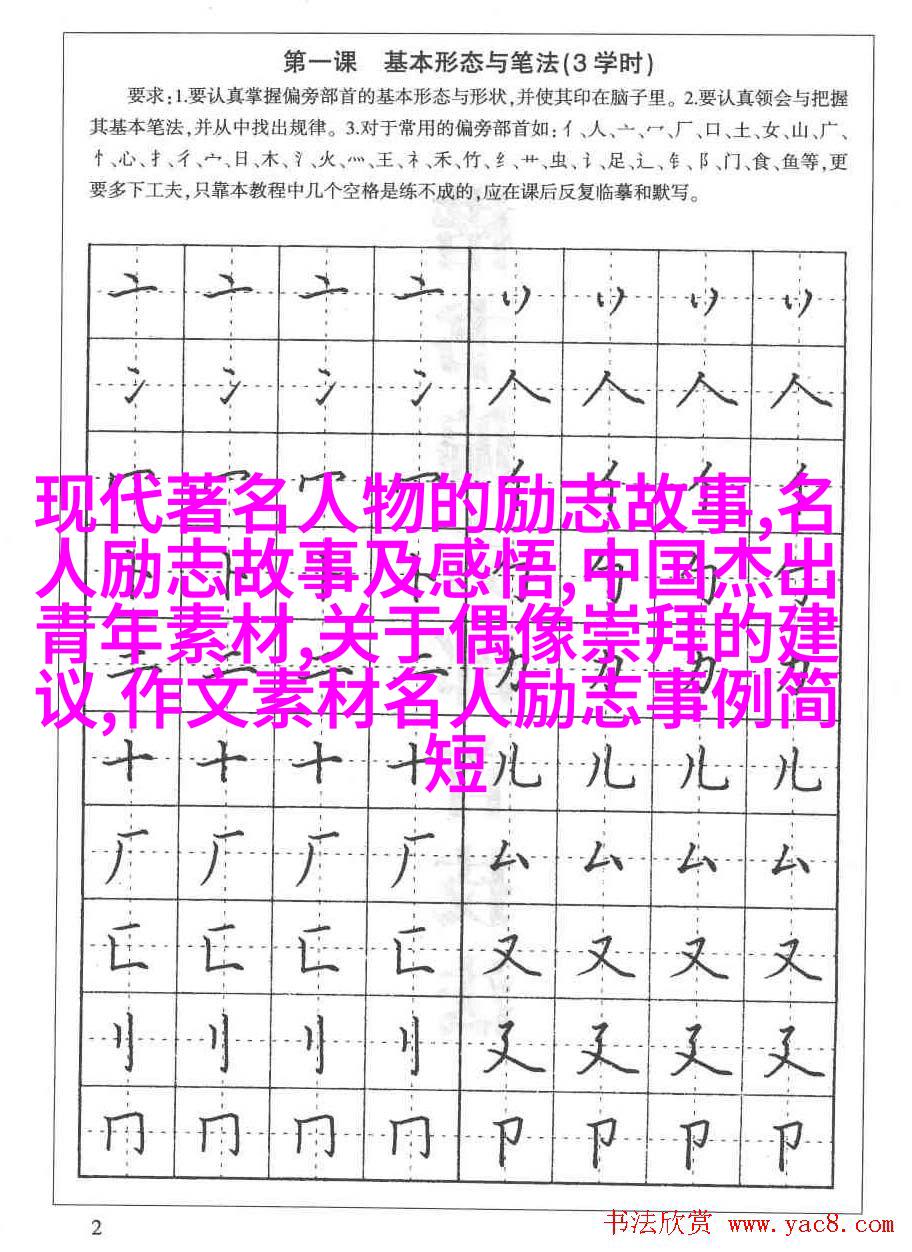 第一课 基本形态与笔法(3学时)
要求:1.要认真掌握偏旁部首的基本形态与形状,并使其印在脑子里。2.要认真领会与把握
其基本笔法,并从中找出规律。3.对于常用的偏旁部首如:亻、人、亠、冖、厂、口、土、女、山、广、
忄、心、扌、彳、宀、日、木、氵、火、灬、王、礻、禾、竹、纟、艹、虫、讠、足、辶、钅、阝、门、食、鱼等,更
要多下工夫,只靠本教程中几个空格是练不成的,应在课后反复临摹和默写。
亠 亠 亠 亠 丷 丷 丷 丷
冫 冫 冫 冫 人 人 人 人
现代著名人物的励志故事,名
人励志故事及感悟,中国杰出
青年素材,关于偶像崇拜的建
议,作文素材名人励志事例简
短
十 十 十 十 儿 儿 儿 儿
厂 厂 厂 厂 厶 厶 厶 厶
匚 匚 匚 匚 又 又 又 又
刂 刂 刂 刂 廴 廴 廴 廴
冂 冂 冂 冂 卩 卩 卩 卩
2
书法欣赏 www.yac8.com